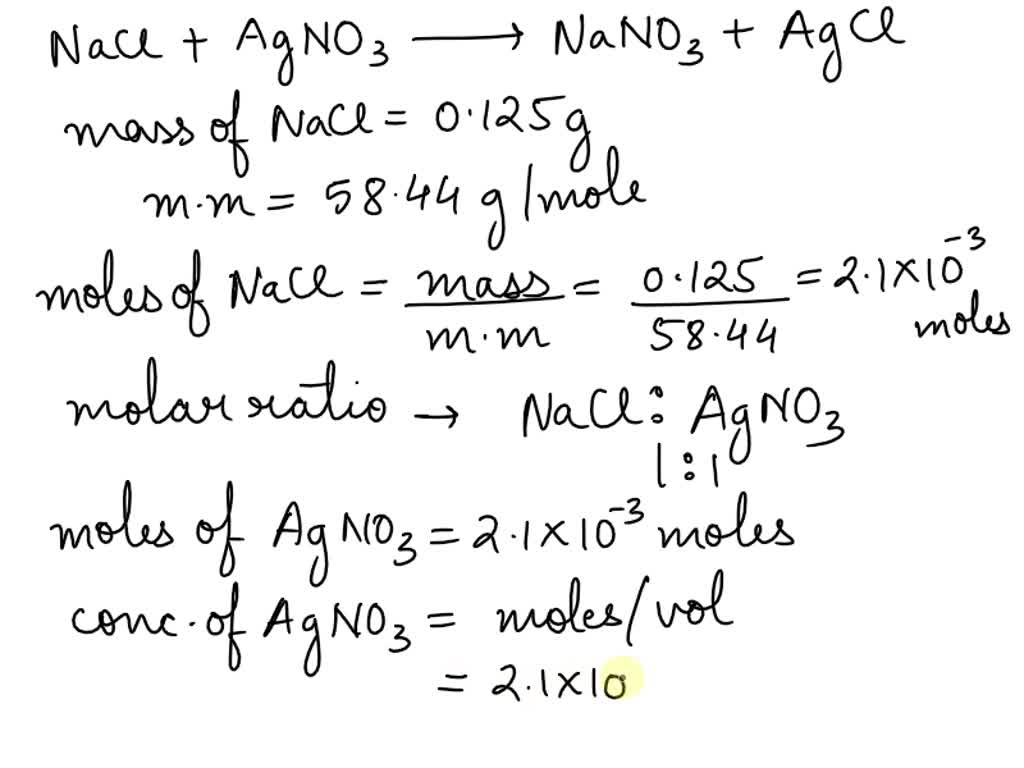 NaCl + AgNO₃ ⟶ NaNO₃ + AgCl
mass of NaCl = 0.125g
m.m = 58.44 g/mole
moles of NaCl = mass/m.m = 0.125/58.44 = 2.1×10⁻³ moles
molar ratio → NaCl : AgNO₃
1:1
moles of AgNO₃ = 2.1×10⁻³ moles
conc. of AgNO₃ = moles/vol
= 2.1×10